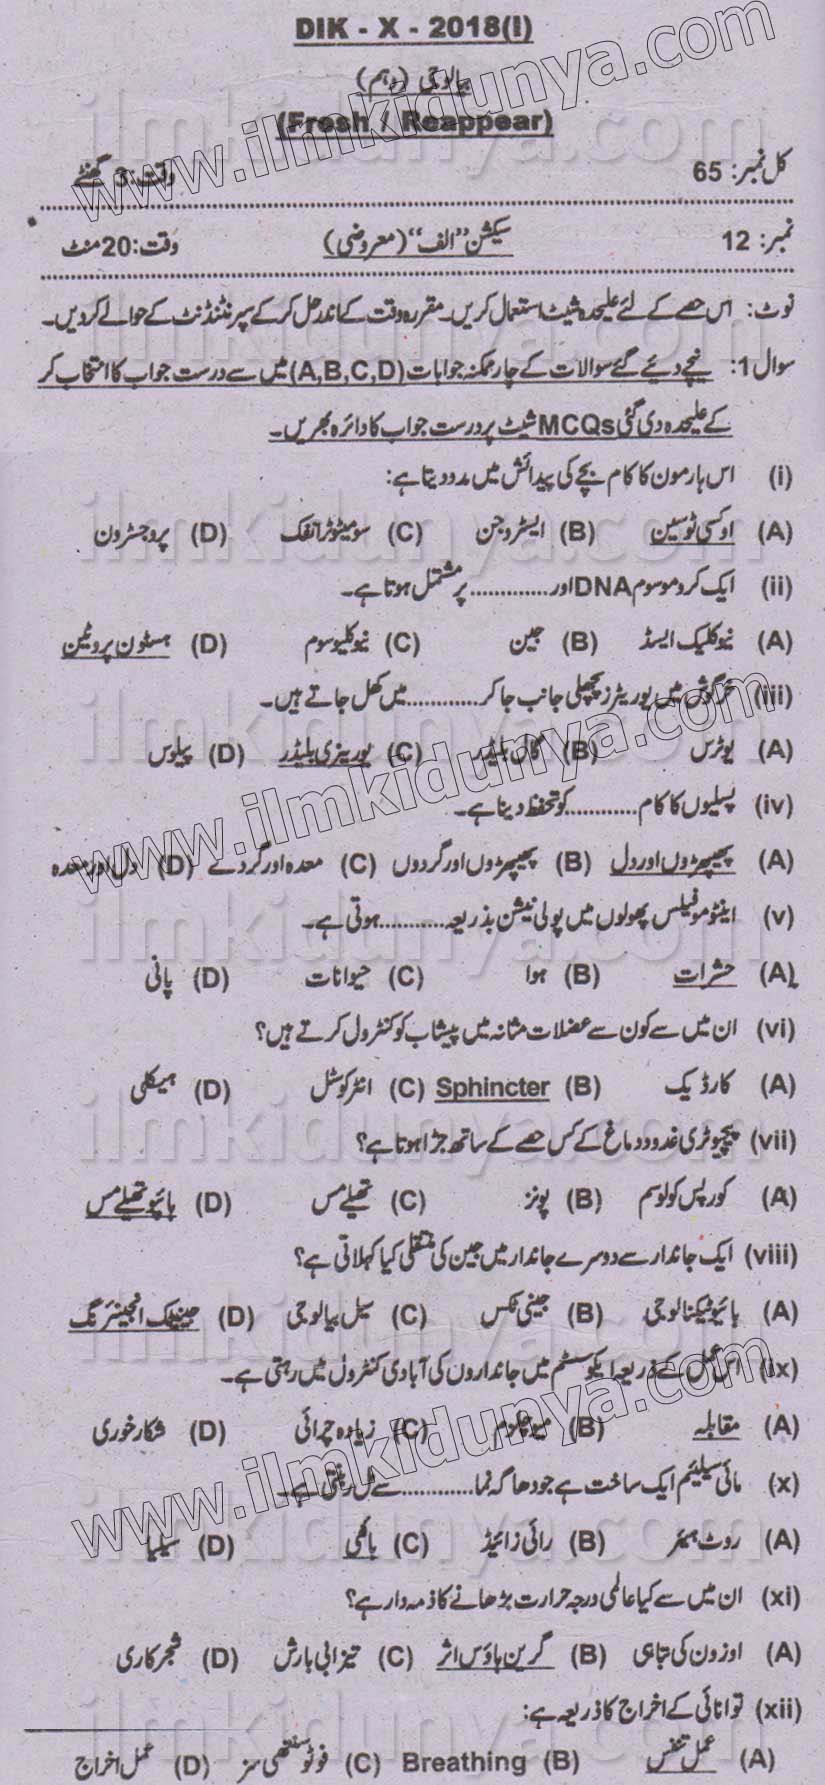 DIK - X - 2018(I)
بیالوجی (دہم)
(Fresh / Reappear)
کل نمبر: 65 وقت: 3 گھنٹے
نمبر: 12 سیکشن "الف" (معروضی) وقت: 20 منٹ
نوٹ: اس حصے کے لئے علیحدہ شیٹ استعمال کریں۔ مقررہ وقت کے اندر حل کر کے سپرنٹنڈنٹ کے حوالے کردیں۔
سوال 1: نیچے دیئے گئے سوالات کے چار ممکنہ جوابات (A,B,C,D) میں سے درست جواب کا انتخاب کر
کے علیحدہ دی گئی MCQs شیٹ پر درست جواب کا دائرہ بھریں۔
(i) اس ہارمون کا کام بچے کی پیدائش میں مدد دیتا ہے:
(A) اوکسی ٹوسین (B) ایسٹروجن (C) سومیٹوٹرافک (D) پروجسٹرون
(ii) ایک کروموسوم DNA اور ............. پر مشتمل ہوتا ہے۔
(A) نیوکلیک ایسڈ (B) جین (C) نیوکلیوسوم (D) ہسٹون پروٹین
(iii) خرگوش میں یوریٹرز پچھلی جانب جا کر ............ میں کھل جاتے ہیں۔
(A) یوٹرس (B) گال بلیڈر (C) یورینری بلیڈر (D) پیلوس
(iv) پسلیوں کا کام ............ کو تحفظ دینا ہے۔
(A) پھیپھڑوں اور دل (B) پھیپھڑوں اور گردوں (C) معدہ اور گردے (D) دل اور معدہ
(v) اینٹوموفیلس پھولوں میں پولی نیشن بذریعہ ........... ہوتی ہے۔
(A) حشرات (B) ہوا (C) حیوانات (D) پانی
(vi) ان میں سے کون سے عضلات مثانہ میں پیشاب کو کنٹرول کرتے ہیں؟
(A) کارڈیک (B) Sphincter (C) انٹرکوسٹل (D) ہیکلی
(vii) پیچیوٹری غدود دماغ کے کس حصے کے ساتھ جڑا ہوتا ہے؟
(A) کورپس کولوسم (B) پونز (C) تھیلے مس (D) ہائپو تھیلے مس
(viii) ایک جاندار سے دوسرے جاندار میں جین کی منتقلی کیا کہلاتی ہے؟
(A) بائیوٹیکنالوجی (B) جینی ٹکس (C) سیل بیالوجی (D) جینیٹک انجینئرنگ
(ix) اس عمل کے ذریعہ ایکو سسٹم میں جانداروں کی آبادی کنٹرول میں رہتی ہے۔
(A) مقابلہ (B) میوچلزم (C) زیادہ چرائی (D) شکار خوری
(x) مائی سیلیئم ایک ساخت ہے جو دھاگہ نما ............ سے مل بنتی ہے۔
(A) روٹ ہیئر (B) رائی زائیڈ (C) ہائفی (D) سیلیا
(xi) ان میں سے کیا عالمی درجہ حرارت بڑھانے کا ذمہ دار ہے؟
(A) اوزون کی تباہی (B) گرین ہاؤس اثر (C) تیزابی بارش (D) شجرکاری
(xii) توانائی کے اخراج کا ذریعہ ہے:
(A) عمل تنفس (B) Breathing (C) فوٹو سنتھی سز (D) عمل اخراج
www.ilmkidunya.com